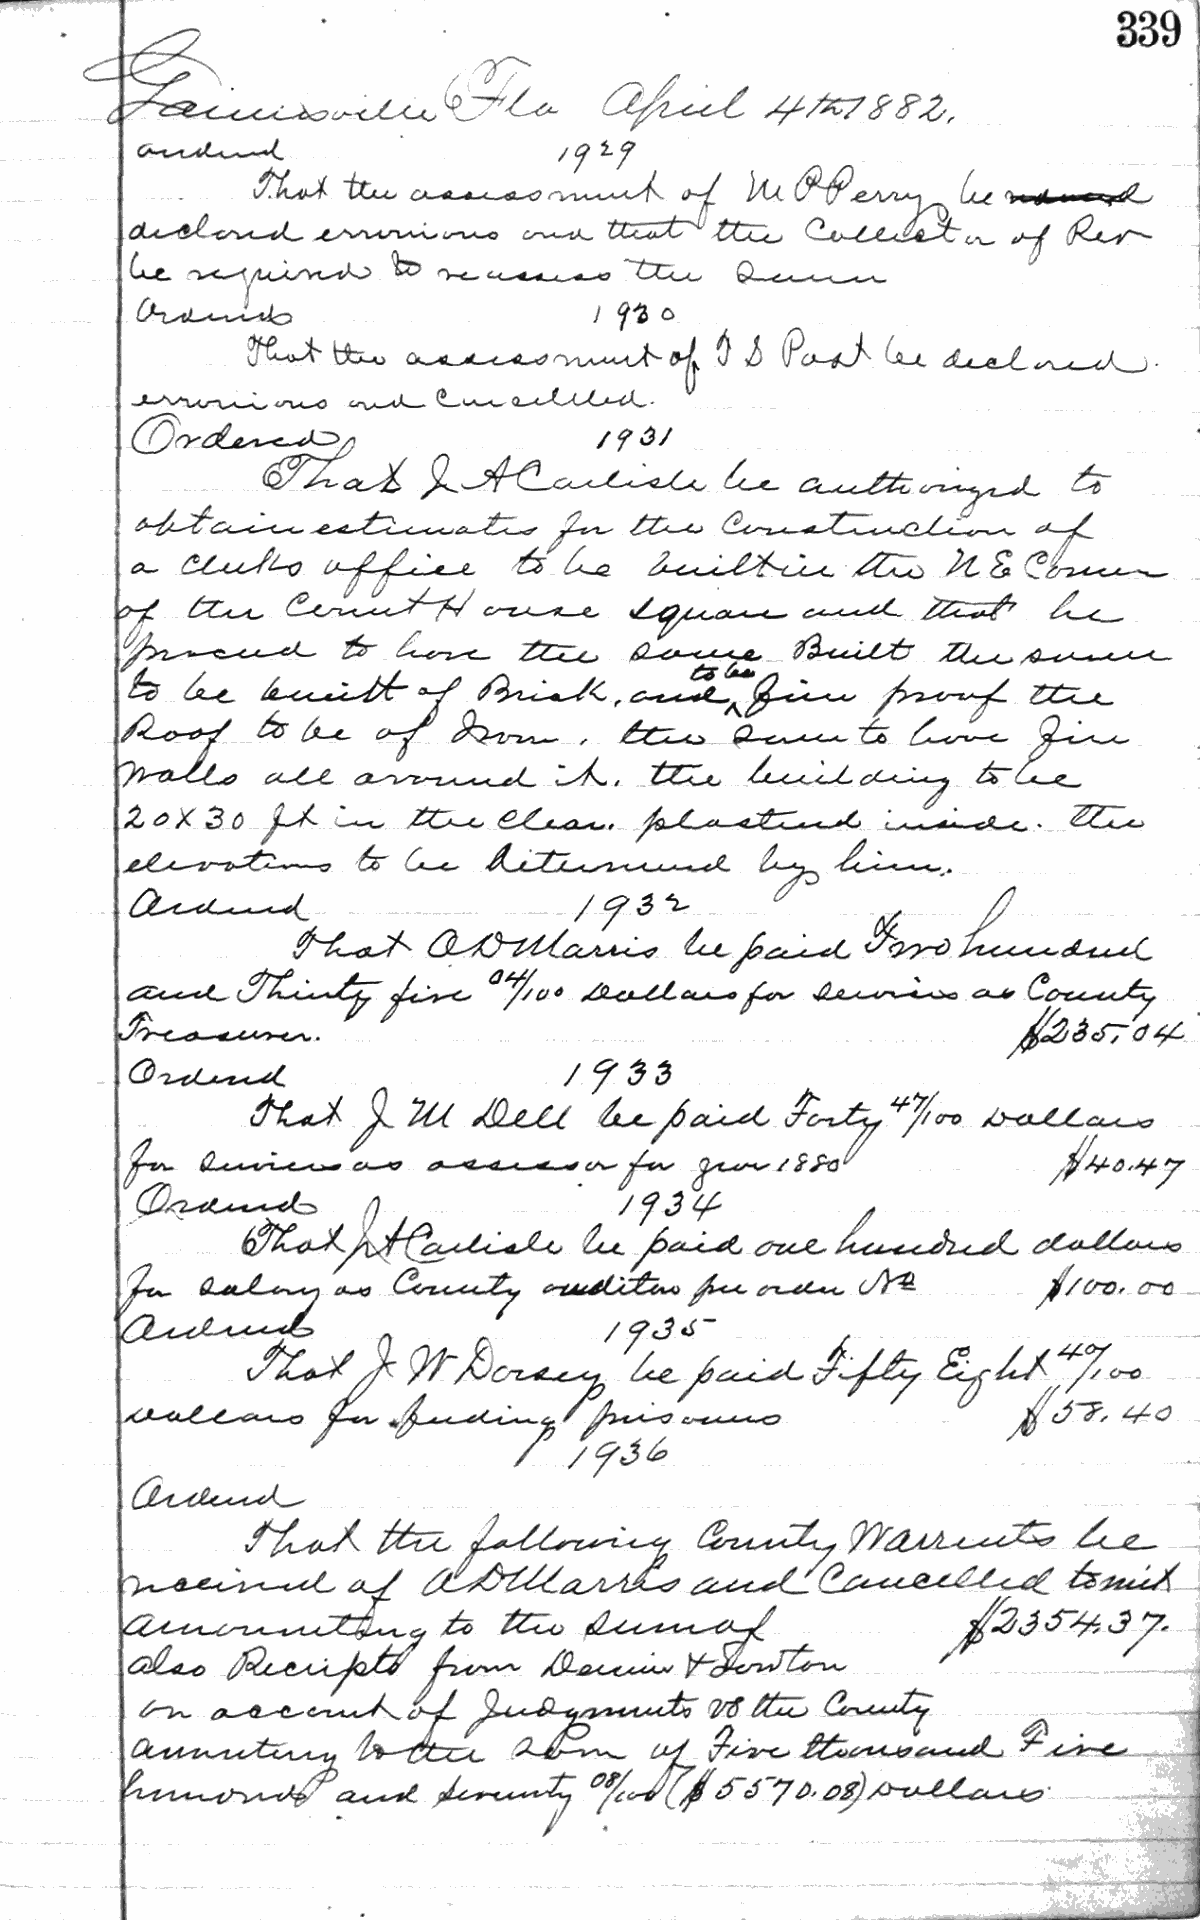 339
Gainesville Fla April 4th 1882.
ordered 1929
That the assessment of M P Perry be
declared erronious and that the Collector of Rev
be required to reassess the same
Ordered 1930
That the assessment of T S Post be declared
erronious and Cancelled.
Ordered 1931
That J A Carlisle be authorized to
obtain estimates for the Construction of
a clerks office to be built in the N E Corner
of the Court House square and that he
proceed to have the same Built the same
to be built of Brick, and to be fire proof the
Roof to be of Iron, the same to have fire
walls all around it. the building to be
20 X 30 ft in the clear. plastered inside. the
elevations to be determined by him.
Ordered 1932
That O D Marris be paid Two hundred
and Thirty five 04/100 Dollars for services as County
Treasurer. $235,04
Ordered 1933
That J M Dell be paid Forty 47/100 Dollars
for services as assessor for year 1880 $40.47
Ordered 1934
That J A Carlisle be paid one hundred dollars
for salary as County auditor per order No $100.00
Ordered 1935
That J W Dorsey be paid Fifty Eight 40/100
Dollars for feeding prisoners $58.40
1936
Ordered
That the following County Warrents be
received of O D Marris and Cancelled towit
amounting to the sum of $2354.37.
also Reciepts from &
on account of Judgments vs the County
amounting to the sum of Five thousand Five
hundred and seventy 08/100 ($5570.08) Dollars